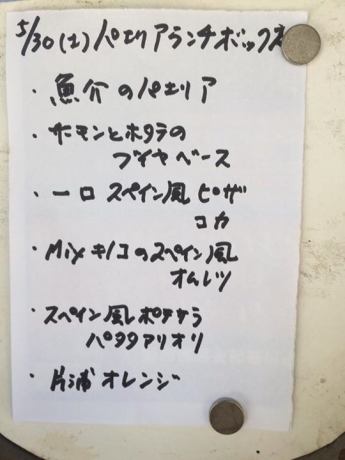 5/30(土)パエリアランチボックス
・魚介のパエリア
・サーモンとホタテの
ブイヤベース
・一口スペイン風ピザ
コカ
・Mixキノコのスペイン風
オムレツ
・スペイン風ポテサラ
パタタアリオリ
・片浦オレンジ